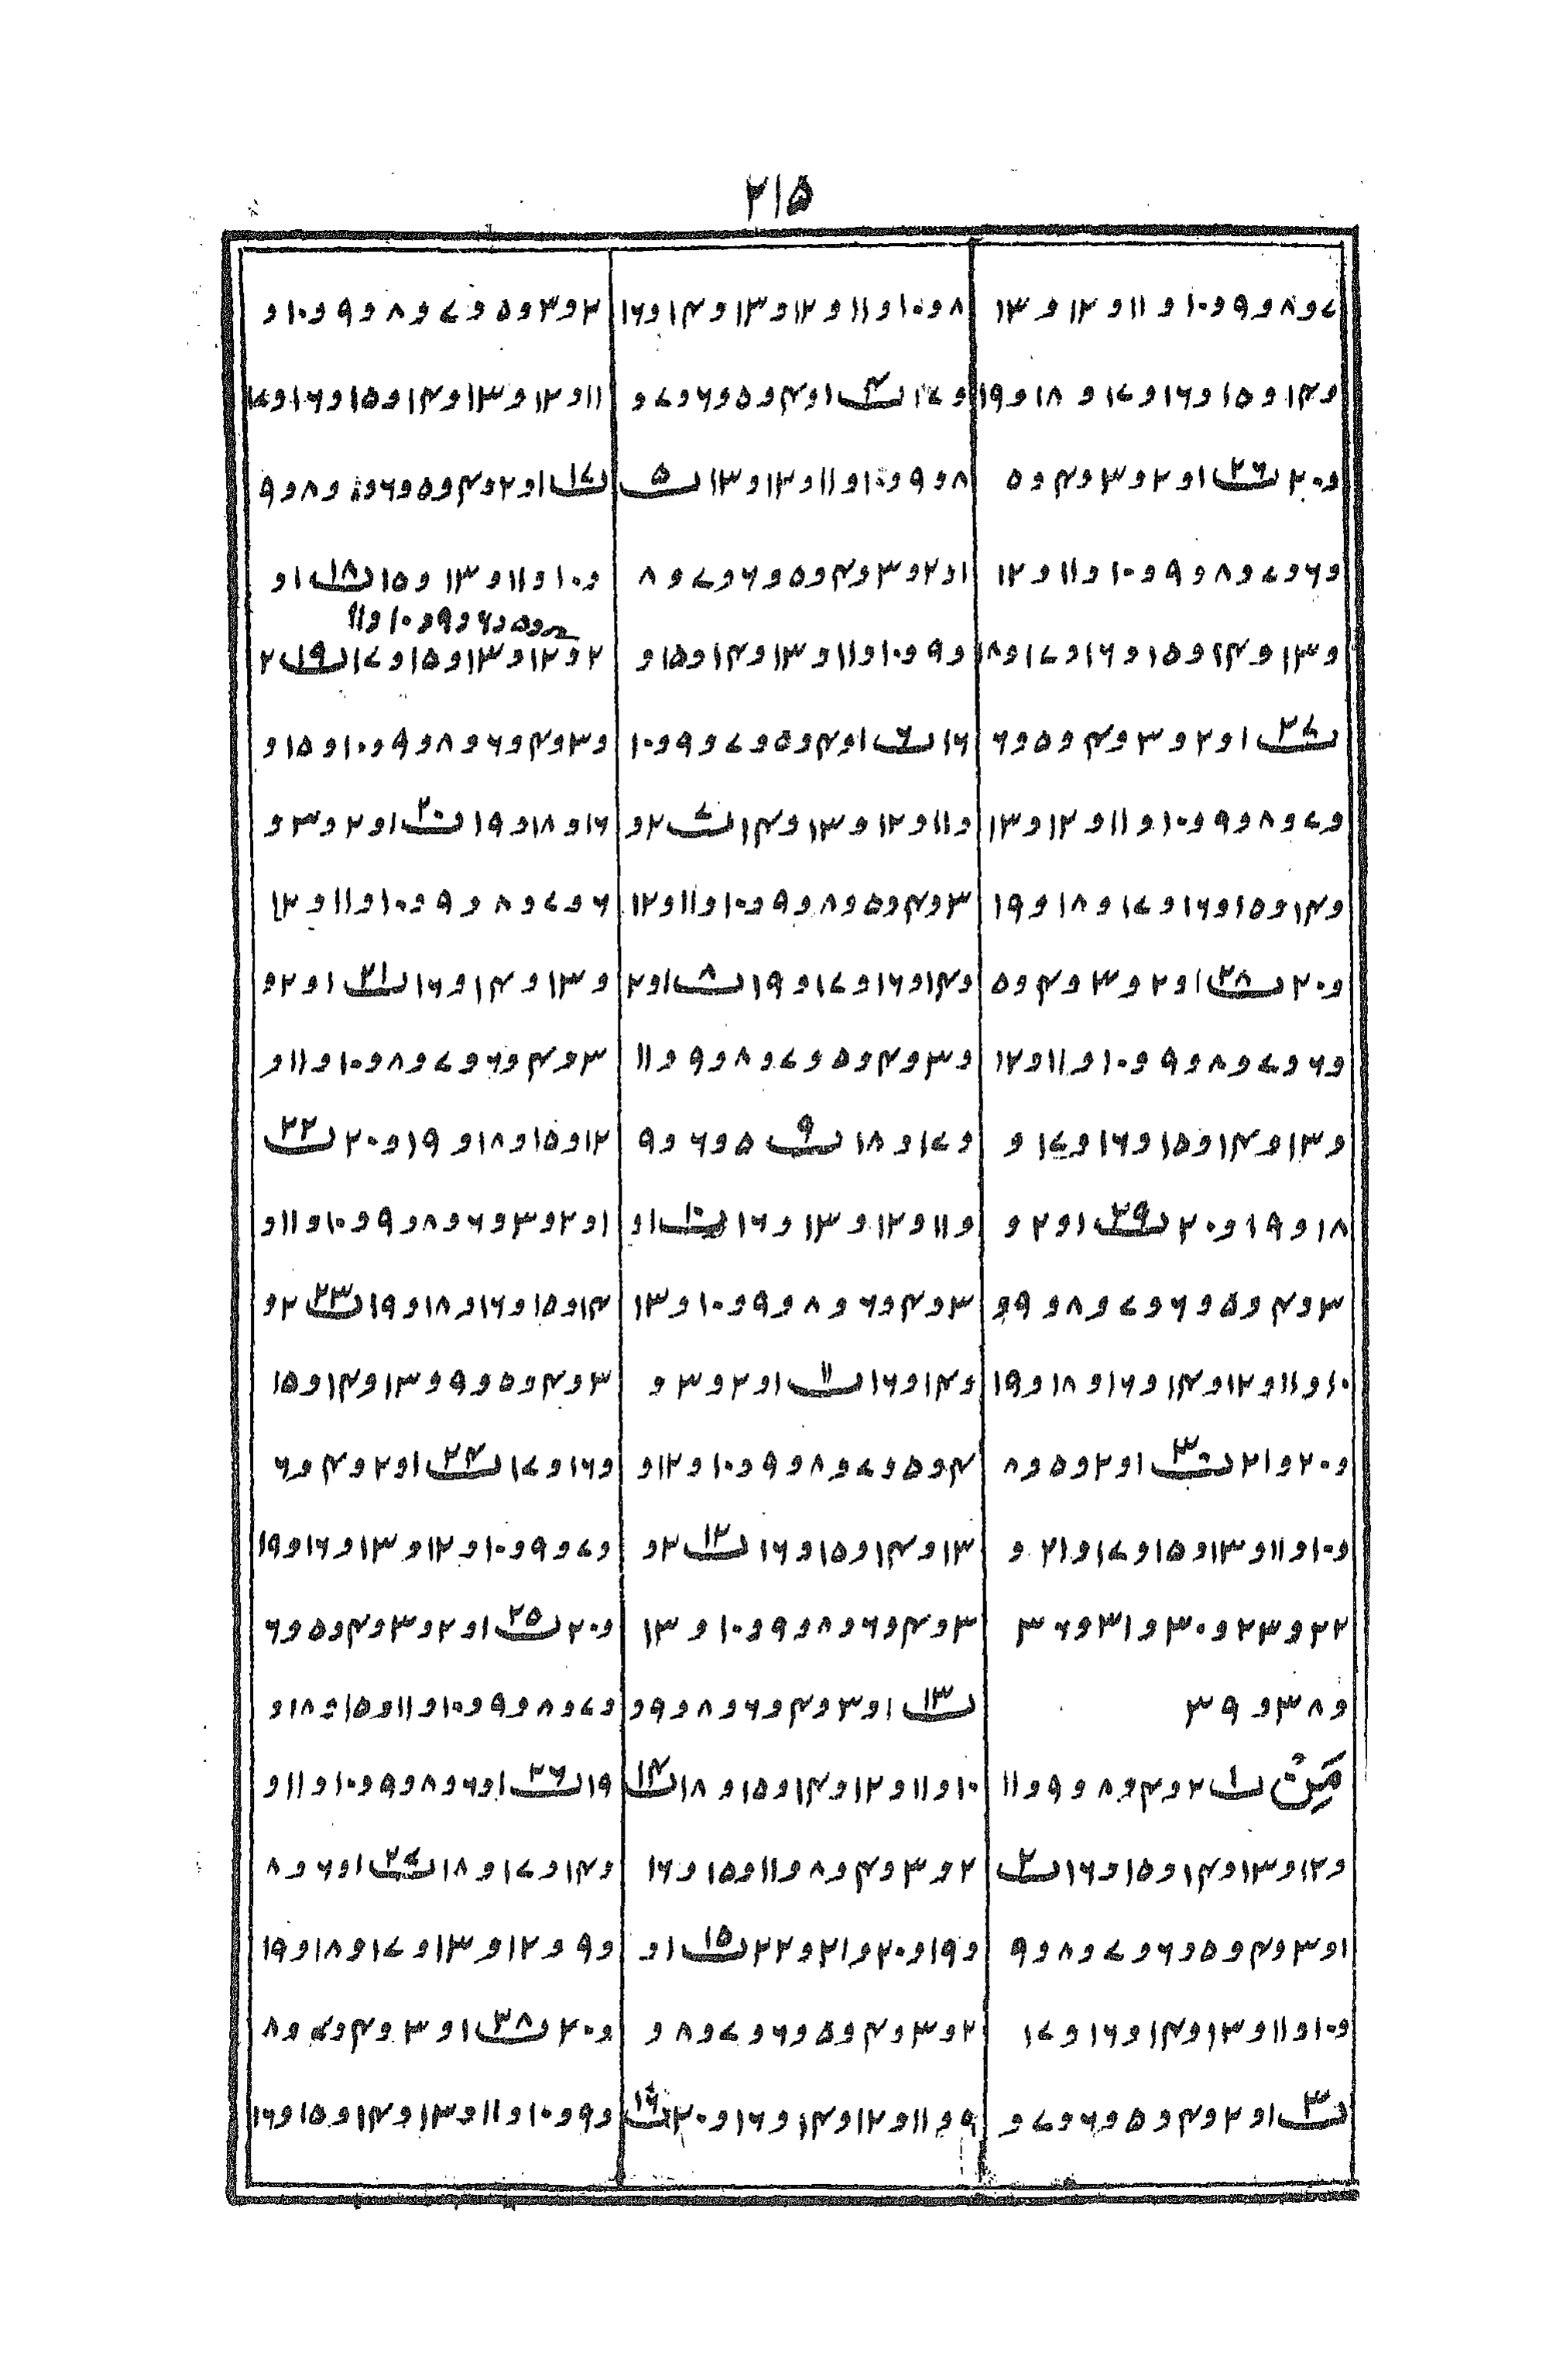 ۲۱۵
۷و۸و۹و۱۰و۱۱و۱۲و۱۳
و۱۴و۱۵و۱۶و۱۷و۱۸و۱۹
و۲۰ ب۲۶ ۱و۲و۳و۴و۵
و۶و۷و۸و۹و۱۰و۱۱و۱۲
و۱۳و۱۴و۱۵و۱۶و۱۷و۱۸
ب۲۷ ۱و۲و۳و۴و۵و۶
و۷و۸و۹و۱۰و۱۱و۱۲و۱۳
و۱۴و۱۵و۱۶و۱۷و۱۸و۱۹
و۲۰ ب۲۸ ۱و۲و۳و۴و۵
و۶و۷و۸و۹و۱۰و۱۱و۱۲
و۱۳و۱۴و۱۵و۱۶و۱۷و
۱۸و۱۹و۲۰ ب۲۹ ۱و۲و
۳و۴و۵و۶و۷و۸و۹و
۱۰و۱۱و۱۲و۱۴و۱۶و۱۸و۱۹
و۲۰و۲۱ ب۳۰ ۱و۲و۵و۸
و۱۰و۱۱و۱۳و۱۵و۱۷و۲۱و
۲۲و۲۳و۳۰و۳۱و۳۶
و۳۸و۳۹
ب۱ ۲و۴و۸و۹و۱۱
و۱۲و۱۳و۱۴و۱۵و۱۶ ب۲
۱و۳و۴و۵و۶و۷و۸و۹
و۱۰و۱۱و۱۳و۱۴و۱۶و۱۷
ب۳ ۱و۲و۴و۵و۶و۷و
۸و۱۰و۱۱و۱۲و۱۳و۱۴و۱۶
و۱۷ ب۴ ۱و۴و۵و۶و۷و
۸و۹و۱۰و۱۱و۱۲و۱۳ ب۵
۱و۲و۳و۴و۵و۶و۷و۸
و۹و۱۰و۱۱و۱۳و۱۴و۱۵و
۱۶ ب۶ ۱و۴و۵و۷و۹و۱۰
و۱۱و۱۲و۱۳و۱۴ ب۷ ۲و
۳و۴و۵و۸و۹و۱۰و۱۱و۱۲
و۱۴و۱۶و۱۷و۱۹ ب۸ ۱و۲
و۳و۴و۵و۷و۸و۹و۱۱
و۱۷و۱۸ ب۹ ۵و۶و۹
و۱۱و۱۲و۱۳و۱۶ ب۱۰ ۱و
۳و۴و۶و۸و۹و۱۰و۱۳
و۱۴و۱۶ ب۱۱ ۱و۲و۳و
۴و۵و۷و۸و۹و۱۰و۱۲و
۱۳و۱۴و۱۵و۱۶ ب۱۲ ۲و
۳و۴و۶و۸و۹و۱۰و۱۳
ب۱۳ ۱و۳و۴و۶و۸و۹و
۱۰و۱۱و۱۲و۱۴و۱۵و۱۸ ب۱۴
۲و۳و۴و۸و۱۱و۱۵و۱۶
و۱۹و۲۰و۲۱و۲۲ ب۱۵ ۱و
۲و۳و۴و۵و۶و۷و۸و
۹و۱۱و۱۲و۱۴و۱۶و۲۰ ب۱۶
۲و۳و۵و۷و۸و۹و۱۰و
۱۱و۱۲و۱۳و۱۴و۱۵و۱۶و۱۷
ب۱۷ ۱و۲و۴و۵و۶و و۸و۹
و۱۰و۱۱و۱۳و۱۵ ب۱۸ ۱و
و۵و۶و۹و۱۰و۱۱
۲و۱۲و۱۳و۱۵و۱۷ ب۱۹ ۲
و۳و۴و۶و۸و۹و۱۰و۱۵و
۱۶و۱۸و۱۹ ب۲۰ ۱و۲و۳و
۶و۷و۸و۹و۱۰و۱۱و۱۲
و۱۳و۱۴و۱۶ ب۲۱ ۱و۲و
۳و۴و۶و۷و۸و۱۰و۱۱و
۱۲و۱۵و۱۸و۱۹و۲۰ ب۲۲
۱و۲و۳و۶و۸و۹و۱۰و۱۱و
۱۴و۱۵و۱۶و۱۸و۱۹ ب۲۳ ۲و
۳و۴و۵و۹و۱۳و۱۴و۱۵
و۱۶و۱۷ ب۲۴ ۱و۲و۴و۶
و۷و۹و۱۰و۱۲و۱۳و۱۶و۱۹
و۲۰ ب۲۵ ۱و۲و۳و۴و۵و۶
و۷و۸و۹و۱۰و۱۱و۱۵و۱۸و
۱۹ ب۲۶ ۱و۶و۸و۹و۱۰و۱۱و
و۱۴و۱۷و۱۸ ب۲۷ ۱و۶و۸
و۹و۱۲و۱۳و۱۷و۱۸و۱۹
و۲۰ ب۲۸ ۱و۳و۴و۷و۸
و۹و۱۰و۱۱و۱۳و۱۴و۱۵و۱۶